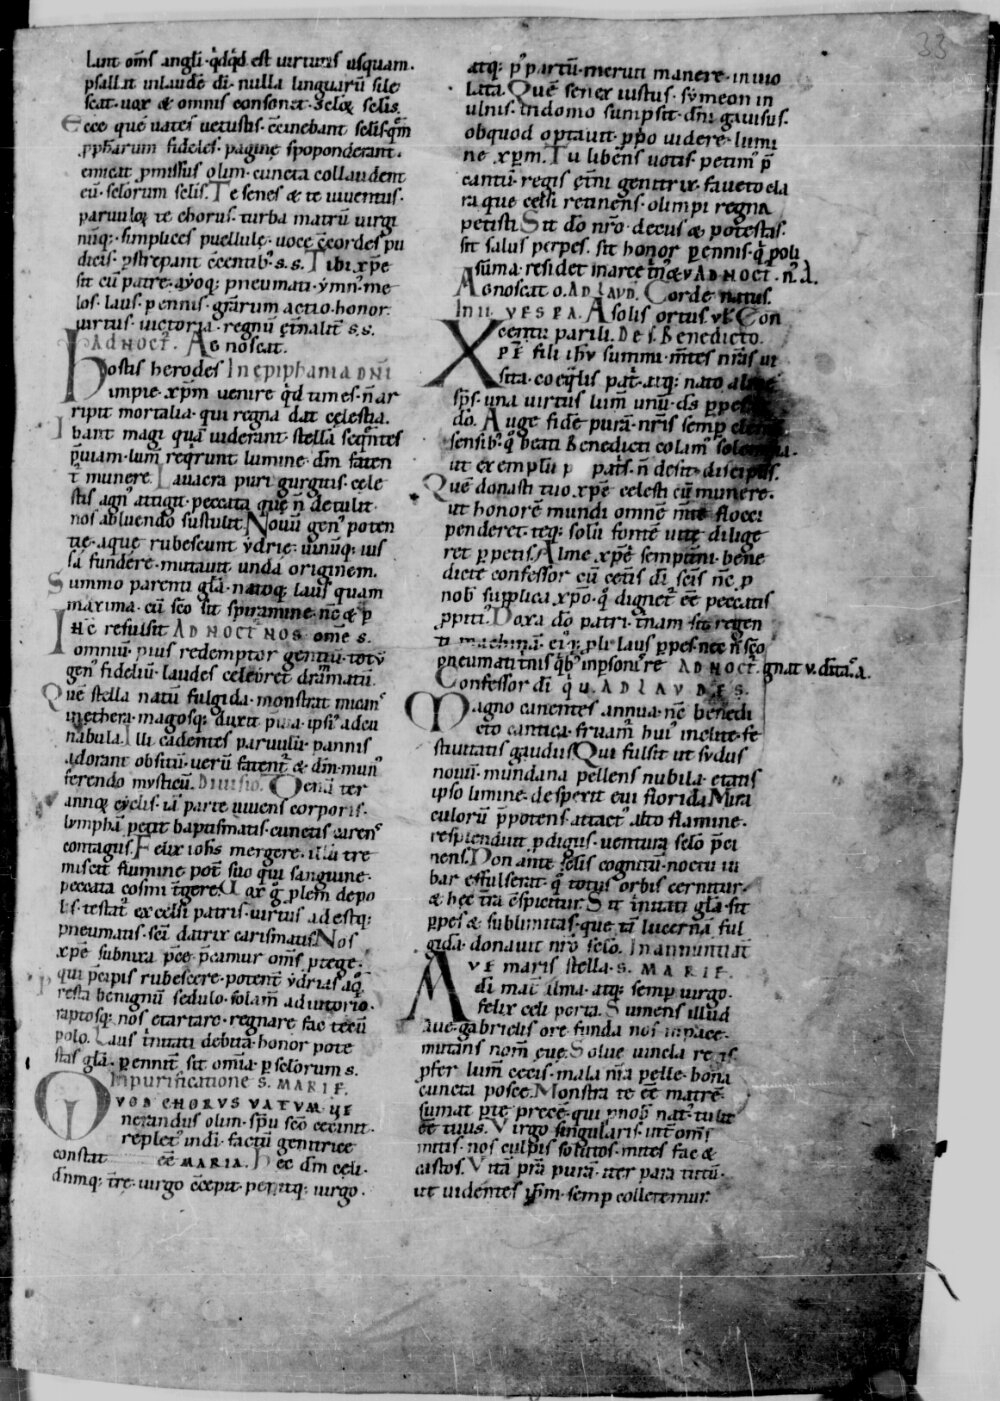 lant om̄s angłi · q̇dq̇d est uirtutis usquam ·
psallat inlaudē dī · nulla linguarū sile
scat · uox & omnis consonet · sclọꝝ sclis.
Ecce quē uates uetustis · c̄cinebant sclis · qm̄
ꝓph̄arum fideles · pagine spoponderant ·
emicat ꝓmissus olim · cuncta collaudent
eū · sclorum sclis. Te senes & te iuuentus ·
paruuloꝝ te chorus · turba matrū uirgi
nūq; · simplices puellulę · uoce c̄cordes pu
dicis · ꝑstrepant c̄centibꝰ s. s. Tibi xp̄e
sit cū patre · aẏoq; pneumati · ẏmnꝰ me
los · laus ꝑennis · grārum actio · honor ·
uirtus · uictoria · regnū ęt̄nalit̄ s. s.
AD NOCT̄. Agnoscat.
Hostis herodes IN EPIPHANIA DNĪ
impie · xp̄m uenire q̇d times · n̄ ar
ripit mortalia · qui regna dat cęlestia.
Ibant magi quā uiderant · stellā seq̄ntes
p̄uiam · lum̄ req̇runt lumine · dm̄ faten
t̄ munere. Lauacra puri gurgitis · cęle
stis agnꝰ attigit · peccata que n̄ detulit ·
nos abluendo sustulit. Nouū genꝰ poten
tię · aque rubescunt ẏdrię · uinūq; ius
sa fundere · mutauit unda originem.
Summo parenti głā · natoq; laus quam
maxima · cū sc̄o sit spiramine · nc̄ & ꝑ
Inc̄ refulsit AD NOCT̄ NOS ome s.
omniū · pius redemptor gentiū · totū
genꝰ fideliū · laudes celebret dramatū.
Quē stella natū fulgida · monstrat micanꝰ
inethera · magosq; duxit p̄uia · ipsiꝰ adcu
nabula. Illi cadentes paruulū · pannis
adorant obsitū · uerū fatentꝰ & dm̄ · munꝰ
ferendo mysticū. Diuisio. Dena ter
annoꝝ cẏclis · iā parte uiuens corporis ·
lẏmphā petit baptismatis · cunctis carenꝰ
contagiis. Felix ioh̄s mergere · illū tre
miscit flumine · potens suo qui sanguine ·
peccata cosmi t̄gere. Uox g̊ prolem de po
lis · testat̄ excelsi patris · uirtus adestq;
pneumatis · sc̄i datrix carismatis. Nos
xp̄e subnixa p̄ce · p̄camur om̄s ꝓtege ·
qui p̄cipis rubescere · potent̄ ẏdrias aq̄ ·
Presta benignū sedulo · solam̄ adiutorio ·
raptosq; nos etartaro · regnare fac tecū
polo. Laus t̄nitati debita · honor pote
stas głā · ꝑennit̄ sit omīa · ꝑ sclorum s.
IN purificatione S. MARIE
QUOD CHORVS VATVM ue
nerandus olim · spū sc̄o cecinit ·
replet̄ indī · factū genitrice
constat ēē MARIA. Hec dm̄ celi ·
dn̄mq; t̄re · uirgo c̄cepit · peꝑitq; uirgo ·
atq; p̄ partū · meruit manere · inuio
lata. Quē senex iustus · sẏmeon in
ulnis · indomo sumpsit · dn̄i gauisus ·
obquod optauit · ꝓpo uidere · lumi
ne xp̄m. Tu libens uotis · petimꝰ p̄
cantū · regis ęt̄ni genitrix · faueto cla
ra que celsi retinens · olimpi regna
petisti. Sit dō nr̄o · decus & potestas ·
sit salus perpes · sit honor ꝑennis · q̇ poli
sūma · residet inarce t̄nꝰ & v̄ AD NOCT̄. n̄. d̄.
Agnoscat o. AD LAVD̄. Corde natus.
In II. VESPA. A solis ortus. v̄. Con
centu parili. DE S. BENEDICTO.
Xp̄e fili ih̄u summi · m̄tes nr̄as ui
sita · coeq̄lis pat̄ · atq; nato
sp̄s · una uirtus lum̄ unū · ds̄
dō. Auge fidē purā · nr̄is semꝑ
sensibꝰ · q̇ beati Benedicti colimꝰ
ut exemplū p pat̄s · n̄ desit discipulis.
Quē donasti tuo xp̄e · cęlesti cū munere ·
ut honorē mundi omnē · m̄te flocci
penderet · teq; solū fontē uitę · dilige
ret ꝑpetis. Alme xp̄e sempit̄ni · bene
dicte confessor · cū cet̄is dī sc̄is · nc̄ ꝑ
nobꝰ supplica xp̄o · q̇ dignet̄ ēē peccatis
ꝓpitiꝰ. Doxa dō patri · t̄nam sit regen
ti machinā · eiꝰq; ꝓli · laus ꝑpes · nec n̄ sc̄o
pneumati · t̄nis q̇bꝰ inpsonis re AD NOCT̄. gnat v̄. ditaꝰ. a.
Confessor dī q̇ u. AD LAVDES.
Magno canentes annua · nc̄ benedi
cto cantica · fruamꝰ huiꝰ inclite · fe
stiuitatis gaudiis. Qui fulsit ut sẏdus
nouū · mundana pellens nubila · etatis
ipso limine · despexit eui florida. Mira
culorū p̄potens · attactꝰ alto flamine ·
resplenduit ꝓdigiis · uentura sclo p̄ci
nens. Non ante sclis cognitū · noctu iu
bar effulserat · q̇ totus orbis cernitur ·
& hec t̄ra c̄spicitur. Sit t̄nitati głā · sit
ꝑpes & sublimitas · que tā lucernā ful
gidā · donauit nr̄o sclo. IN annuntiat̄
AVE maris stella · S. MARIE.
dī mat̄ alma · atq; semꝑ uirgo ·
felix celi porta. Sumens illud
aue · gabrielis ore · funda nos inpace ·
mutans nom̄ eue. Solue uincla reis
ꝓfer lum̄ cecis · mala nr̄a pelle · bona
cuncta posce. Monstra te ēē matrē ·
sumat ꝑte precē · qui ꝓnobꝰ natꝰ tulit
ēē tuus. Virgo singularis · int̄ om̄s
mitis · nos culpis solutos · mites fac &
castos. Vitā pr̄a purā · iter para tutū ·
ut uidentes ih̄m · semꝑ collętemur.